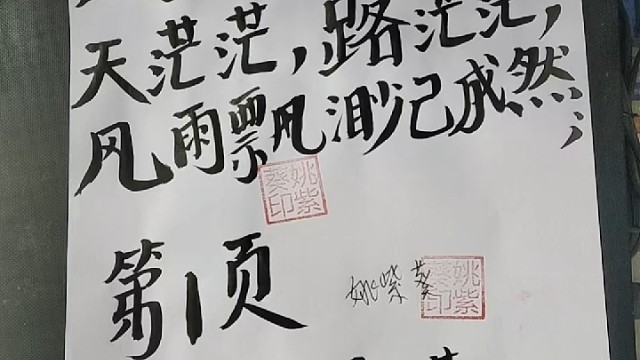 天茫茫，路茫茫，
风雨飘渺已成然；
姚紫葵印
第1页
姚紫葵
姚紫葵印